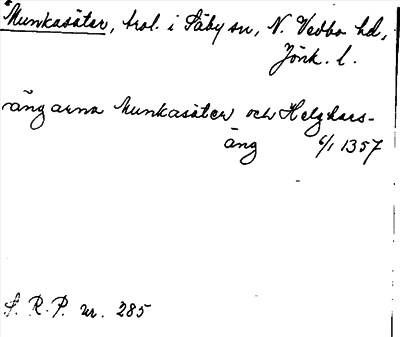 Munkasäter, trol. i Säby sn, N. Vedbo hd,
Jönk. l.
ängarna Munkasäter och Helghars-
äng 6/1 1357
S. R. P. nr. 285